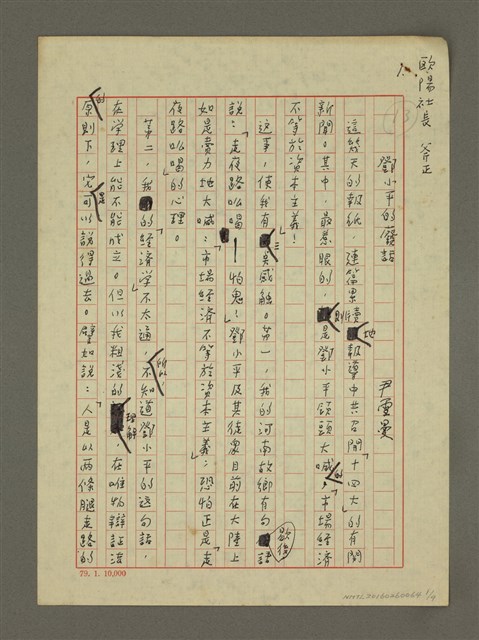 歐陽社長 斧正
1.
鄧小平的廢話
尹雪曼
這幾天的報紙,連篇累牘地報導中共召開「十四大」的有關
新聞。其中,最惹眼的,則是鄧小平領頭大喊的,「市場經濟
不等於資本主義!」
這事,使我有三點感觸。第一,我的河南故鄉有句歇後語
說:「走夜路吆喝——怕鬼!」鄧小平及其徒眾目前在大陸上
如是賣力地大喊:「市場經濟不等於資本主義」,恐怕正是「走
夜路吆喝」的心理。
第二,我的經濟學不太通,所以不知道鄧小平的這句話,
在學理上能不能成立。但以我粗淺的理解,在唯物辯証法
的原則下,是完可以說得過去。譬如說:人是以兩條腿走路的
79. 1. 10,000
1/4